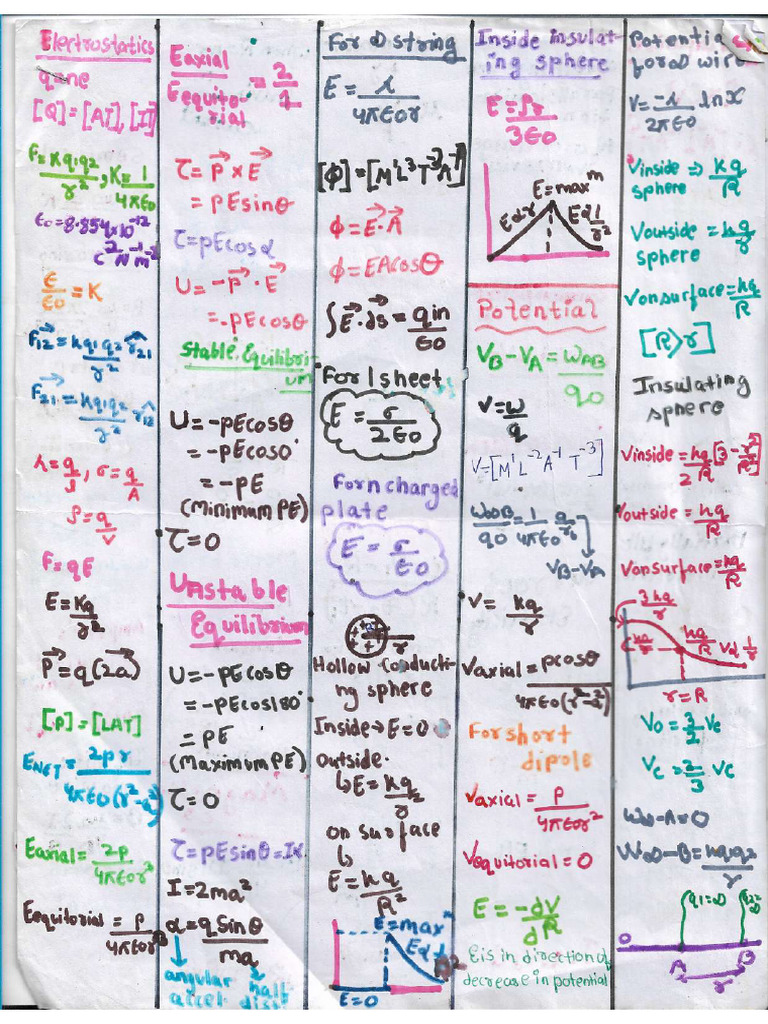 Electrostatics
q=ne
[Q]=[AT],[IT]
F=Kq1q2/r², K=1/4πε0
ε0=8.854x10^-12
C²N^-1m^-2
ε/ε0=K
F12=kq1q2/r² r21
F21=kq1q2/r² r12
λ=q/l, σ=q/A
ρ=q/V
F=qE
E=Kq/r²
P=q(2a)
[P]=[LAT]
ENET=2pr/4πε0(r²-a²)
Eaxial=2p/4πε0r³
Eequitorial=p/4πε0r³
Eaxial/Eequitorial=2/1
τ=P×E
=pEsinθ
τ=pEcosα
U=-P·E
=-pEcosθ
Stable Equilibrium
U=-pEcosθ
=-pEcos0°
=-pE
(Minimum PE)
τ=0
Unstable
Equilibrium
U=-pEcosθ
=-pEcos180°
=PE
(Maximum PE)
τ=0
τ=pEsinθ=Iα
I=2ma²
α=qSinθ/ma
angular accel
half dist
For ∞ string
E=λ/4πε0r
[ϕ]=[M¹L³T^-3A^-1]
ϕ=E·A
ϕ=EAcosθ
∫E·ds=qin/ε0
For 1 sheet
E=σ/2ε0
For n charged
plate
E=σ/ε0
r
Hollow Conducti-
ng sphere
Inside→E=0
outside.
↳E=kq/r²
on surface
↳
E=kq/R²
E=max^m
E∝1/r²
E=0
Inside insulat-
ing sphere
E=ρr/3ε0
E=max^m
E∝r
E∝1/r²
Potential
VB-VA=WAB/q0
V=W/q
V=[M¹L^-2A^-1T^-3]
W∞B/q0=1/4πε0 q/r
VB-VA
V=kq/r
Vaxial=pcosθ/4πε0(r²-a²)
For short
dipole
Vaxial=P/4πε0r²
Vequitorial=0
E=-dV/dR
E is in direction of
decrease in potential
for ∞ wire
V=-λ/2πε0 lnx
Vinside⇒kq/R
sphere
Voutside=kq/r
sphere
Von surface=kq/R
[R>r]
Insulating
sphere
Vinside=kq/2R[3-r²/R²]
Voutside=kq/R
Von surface=kq/R
kq/R
V∝1/r
r=R
V0=3/2 Vc
Vc=2/3 Vc
W∞-A=0
W∞-B=kq1q2/r
q1=∞
0
r